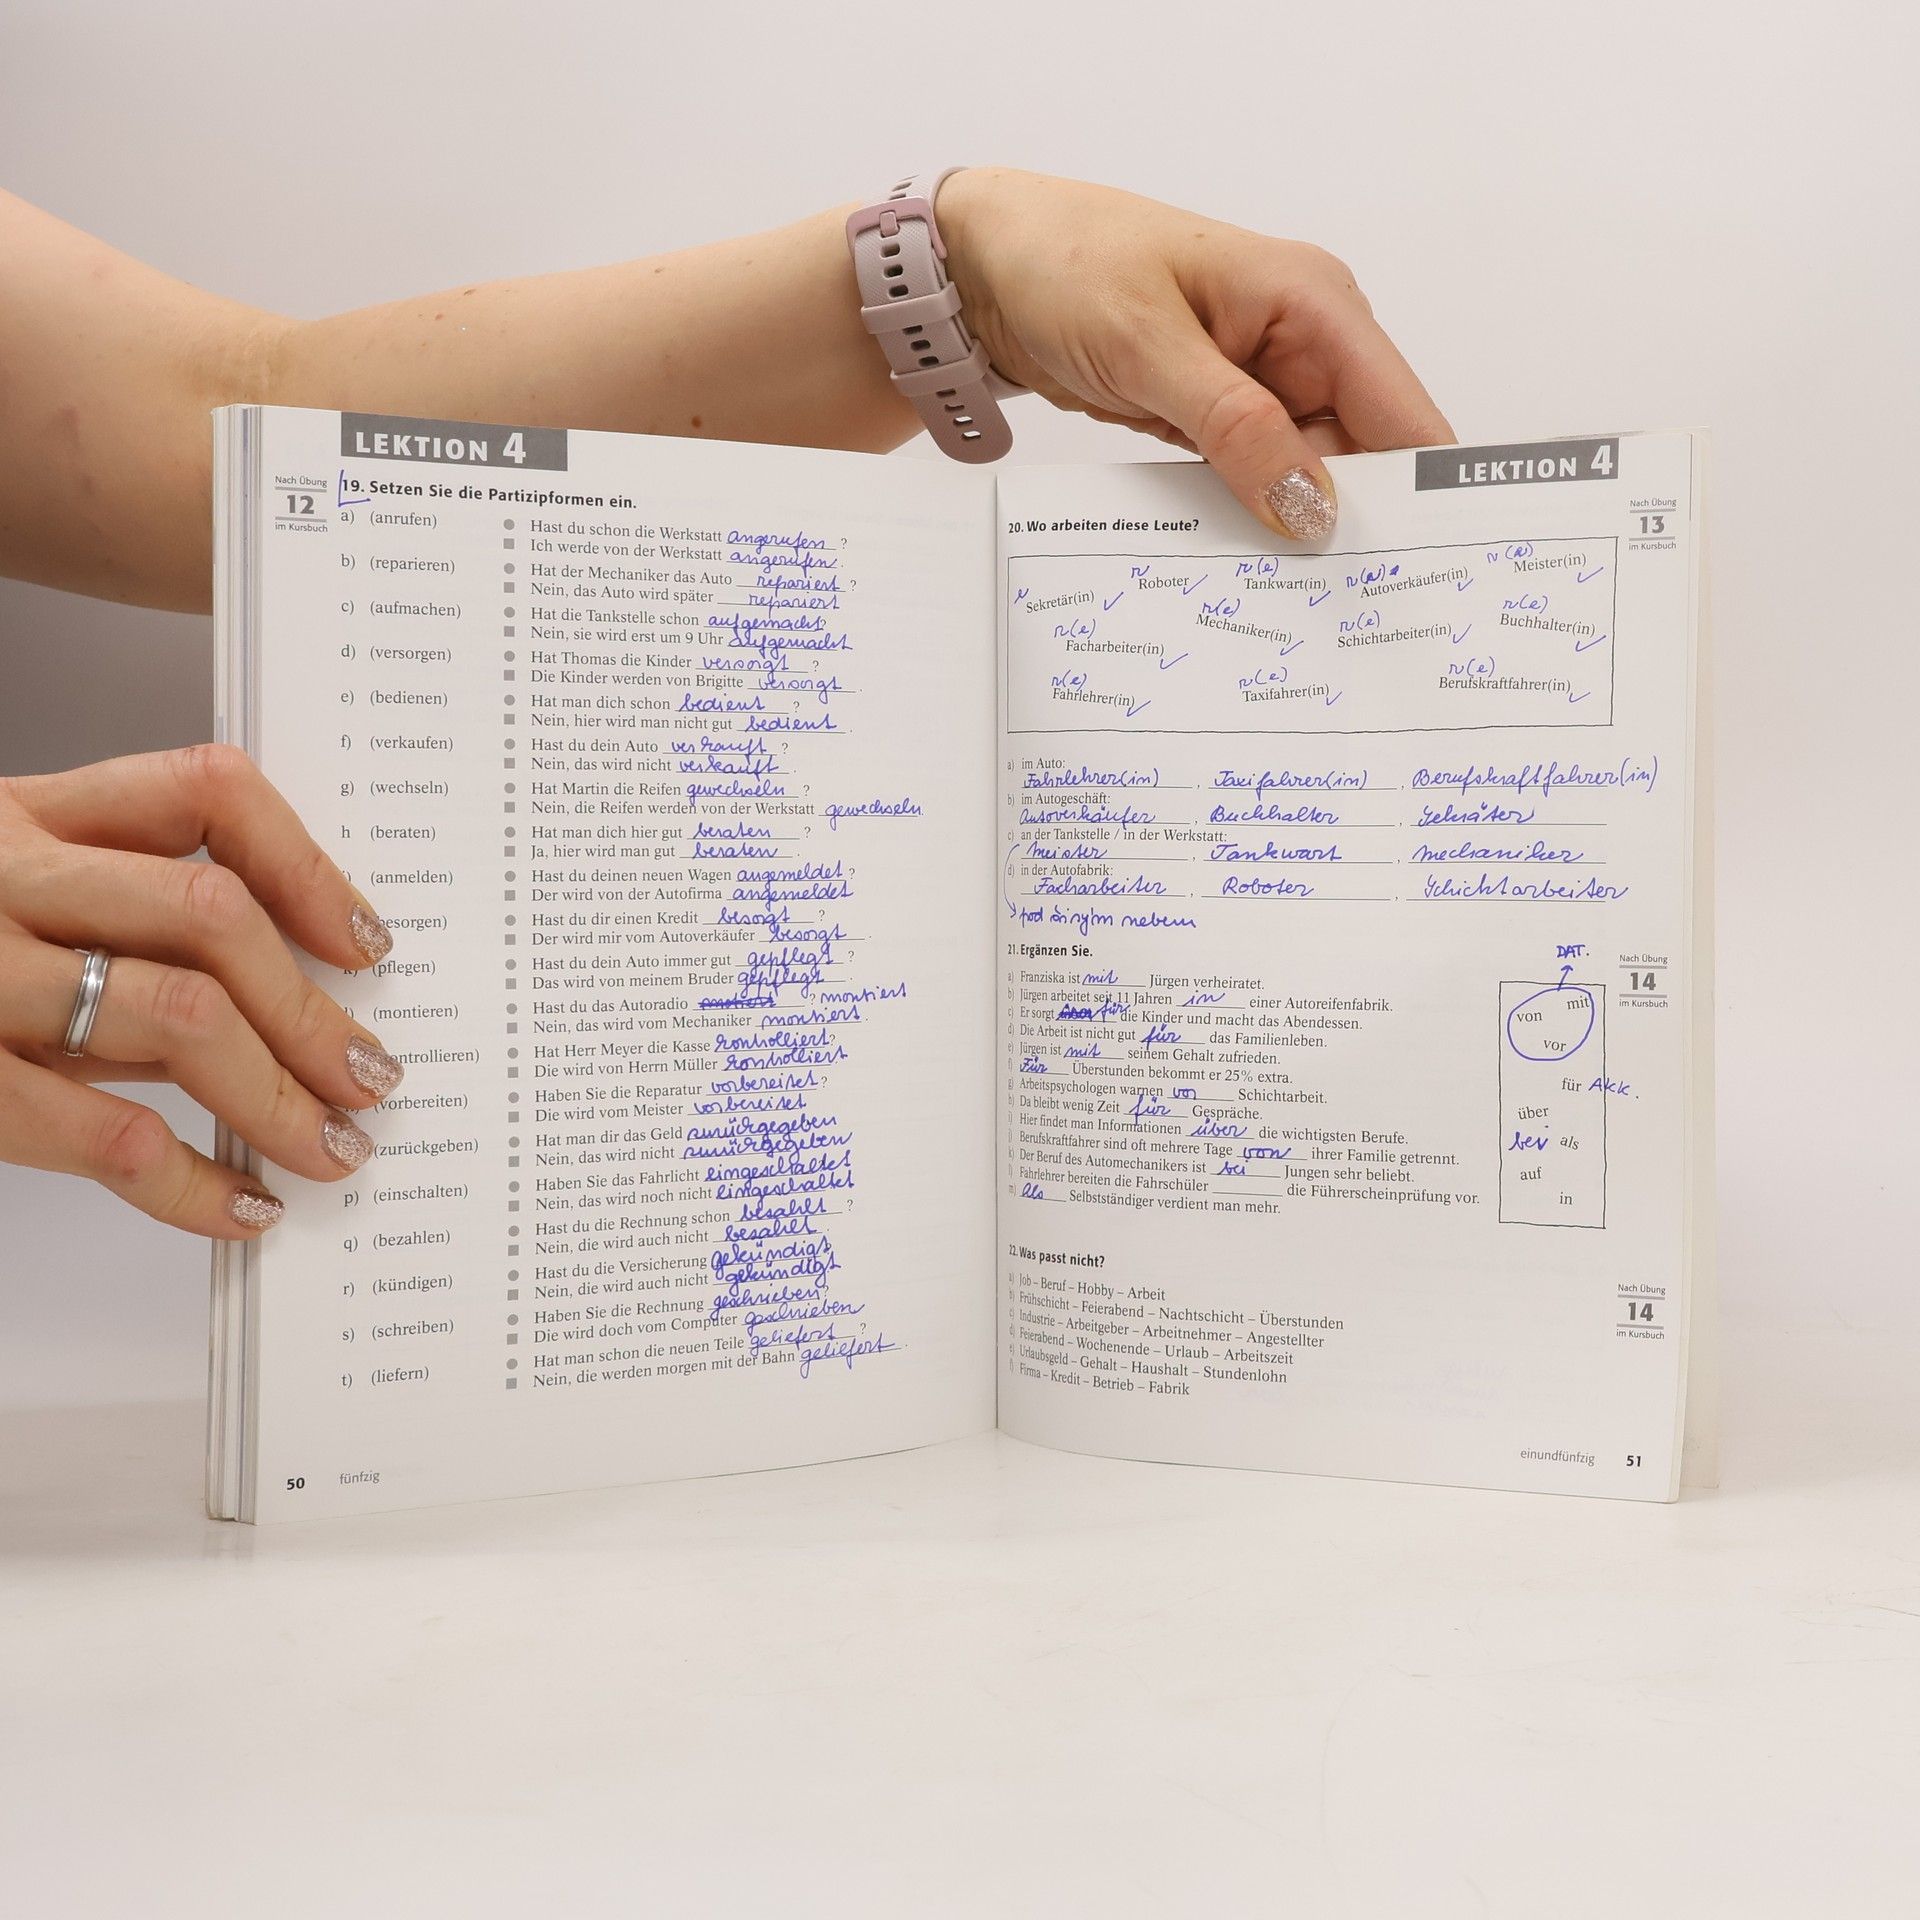 LEKTION 4
Nach Übung
12
im Kursbuch
19. Setzen Sie die Partizipformen ein.
a) (anrufen) Hast du schon die Werkstatt angerufen ?
Ich werde von der Werkstatt angerufen.
b) (reparieren) Hat der Mechaniker das Auto repariert ?
Nein, das Auto wird später repariert
c) (aufmachen) Hat die Tankstelle schon aufgemacht?
Nein, sie wird erst um 9 Uhr aufgemacht
d) (versorgen) Hat Thomas die Kinder versorgt ?
Die Kinder werden von Brigitte versorgt.
e) (bedienen) Hat man dich schon bedient ?
Nein, hier wird man nicht gut bedient.
f) (verkaufen) Hast du dein Auto verkauft ?
Nein, das wird nicht verkauft.
g) (wechseln) Hat Martin die Reifen gewechseln ?
Nein, die Reifen werden von der Werkstatt gewechseln.
h (beraten) Hat man dich hier gut beraten ?
Ja, hier wird man gut beraten.
(anmelden) Hast du deinen neuen Wagen angemeldet ?
Der wird von der Autofirma angemeldet
besorgen) Hast du dir einen Kredit besorgt ?
Der wird mir vom Autoverkäufer besorgt.
k) (pflegen) Hast du dein Auto immer gut gepflegt ?
Das wird von meinem Bruder gepflegt.
(montieren) Hast du das Autoradio ? montiert
Nein, das wird vom Mechaniker montiert.
ontrollieren) Hat Herr Meyer die Kasse kontrolliert?
Die wird von Herrn Müller kontrolliert.
(vorbereiten) Haben Sie die Reparatur vorbereitet?
Die wird vom Meister vorbereitet
(zurückgeben) Hat man dir das Geld zurückgegeben
Nein, das wird nicht zurückgegeben
p) (einschalten) Haben Sie das Fahrlicht eingeschaltet
Nein, das wird noch nicht eingeschaltet
q) (bezahlen) Hast du die Rechnung schon bezahlt ?
Nein, die wird auch nicht bezahlt.
r) (kündigen) Hast du die Versicherung gekündigt
Nein, die wird auch nicht gekündigt
s) (schreiben) Haben Sie die Rechnung geschrieben?
Die wird doch vom Computer geschrieben
t) (liefern) Hat man schon die neuen Teile geliefert ?
Nein, die werden morgen mit der Bahn geliefert.
50 fünfzig
LEKTION 4
Nach Übung
13
im Kursbuch
20. Wo arbeiten diese Leute?
r r(e) r(e) r(e)
Roboter Tankwart(in) Autoverkäufer(in) Meister(in)
e Sekretär(in)
r(e) r(e) r(e) r(e)
Facharbeiter(in) Mechaniker(in) Schichtarbeiter(in) Buchhalter(in)
r(e) r(e) r(e)
Fahrlehrer(in) Taxifahrer(in) Berufskraftfahrer(in)
a) im Auto:
Fahrlehrer(in), Taxifahrer(in), Berufskraftfahrer(in)
b) im Autogeschäft:
Autoverkäufer, Buchhalter, Sekräter
c) an der Tankstelle / in der Werkstatt:
Meister, Tankwart, Mechaniker
d) in der Autofabrik:
Facharbeiter, Roboter, Schichtarbeiter
pod širým nebem
21. Ergänzen Sie.
a) Franziska ist mit Jürgen verheiratet.
b) Jürgen arbeitet seit 11 Jahren in einer Autoreifenfabrik.
c) Er sorgt für die Kinder und macht das Abendessen.
d) Die Arbeit ist nicht gut für das Familienleben.
e) Jürgen ist mit seinem Gehalt zufrieden.
f) Für Überstunden bekommt er 25% extra.
g) Arbeitspsychologen warnen vor Schichtarbeit.
h) Da bleibt wenig Zeit für Gespräche.
i) Hier findet man Informationen über die wichtigsten Berufe.
j) Berufskraftfahrer sind oft mehrere Tage von ihrer Familie getrennt.
k) Der Beruf des Automechanikers ist bei Jungen sehr beliebt.
l) Fahrlehrer bereiten die Fahrschüler ______ die Führerscheinprüfung vor.
m) Als Selbstständiger verdient man mehr.
DAT.
mit
von
vor
für AKK.
über
bei als
auf
in
Nach Übung
14
im Kursbuch
22. Was passt nicht?
a) Job – Beruf – Hobby – Arbeit
b) Frühschicht – Feierabend – Nachtschicht – Überstunden
c) Industrie – Arbeitgeber – Arbeitnehmer – Angestellter
d) Feierabend – Wochenende – Urlaub – Arbeitszeit
e) Urlaubsgeld – Gehalt – Haushalt – Stundenlohn
f) Firma – Kredit – Betrieb – Fabrik
Nach Übung
14
im Kursbuch
einundfünfzig 51